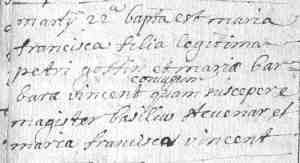 marty 22a bapta est maria
francisca filia legitima
petri goffin et mariæ bar
conjugum
baræ vincent quam suscepere
magister basilius Stevenar et
maria francisca vincent